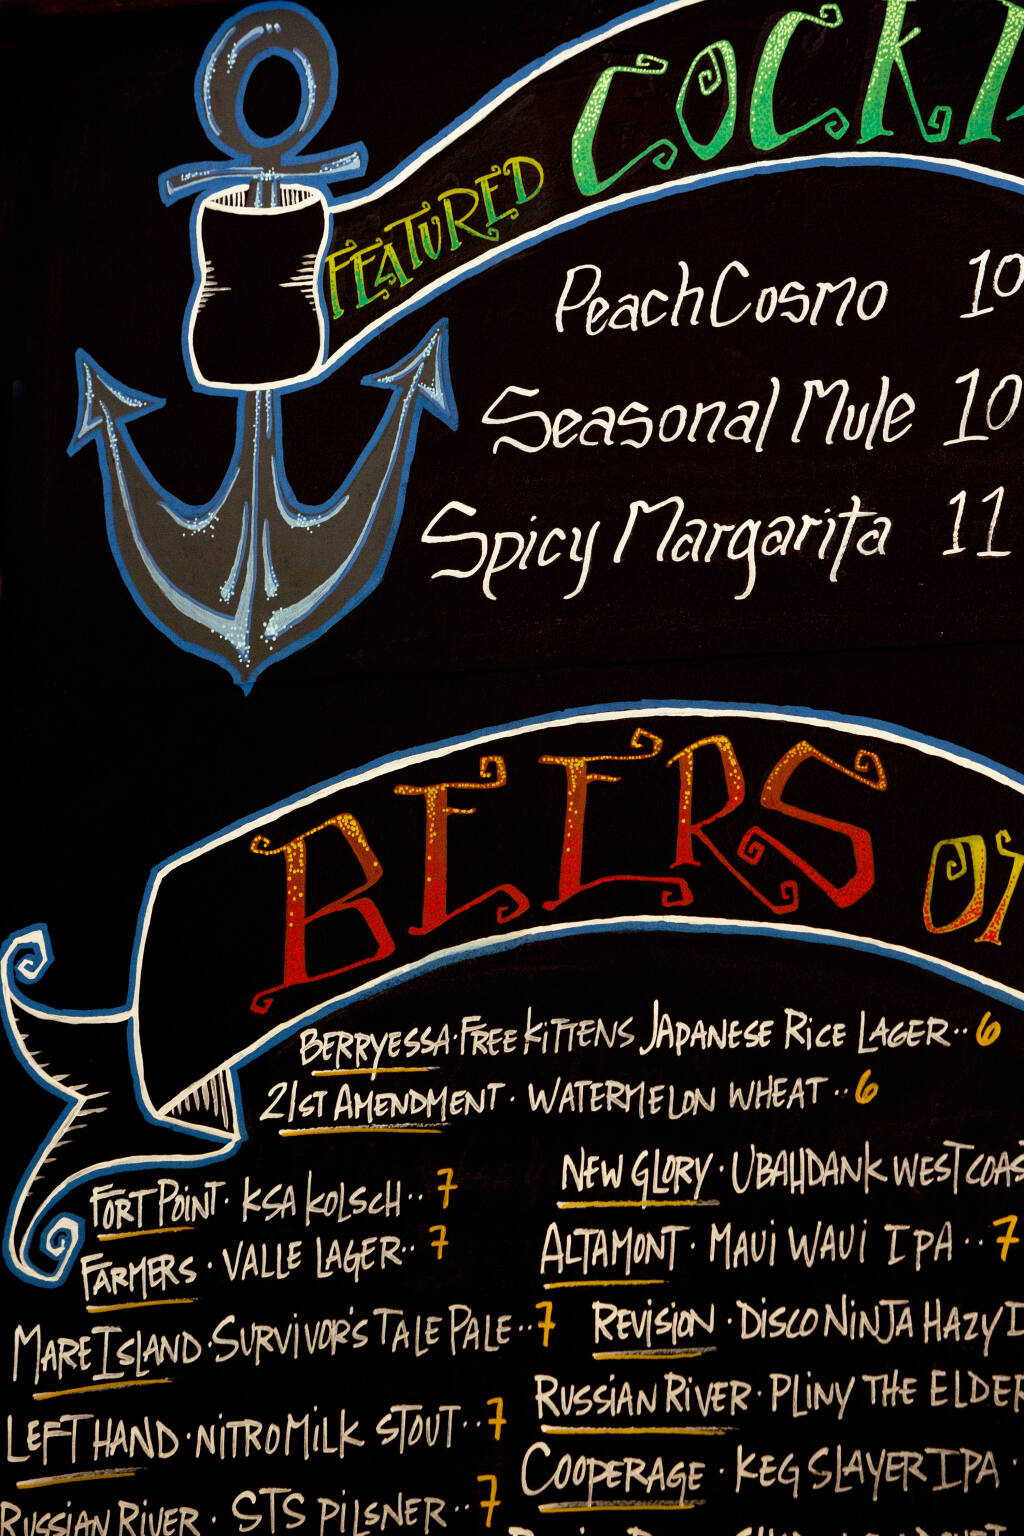 FEATURED COCKT
Peach Cosmo 10
Seasonal Mule 10
Spicy Margarita 11
BEERS
BERRYESSA · FREE KITTENS JAPANESE RICE LAGER ·· 6
21ST AMENDMENT · WATERMELON WHEAT ·· 6
FORT POINT · KSA KOLSCH ·· 7
FARMERS · VALLE LAGER ·· 7
MARE ISLAND · SURVIVOR'S TALE PALE ·· 7
LEFT HAND · NITRO MILK STOUT ·· 7
RUSSIAN RIVER · STS PILSNER ·· 7
NEW GLORY · UBAHDANK WEST COAS
ALTAMONT · MAUI WAUI IPA ·· 7
REVISION · DISCO NINJA HAZY I
RUSSIAN RIVER · PLINY THE ELDER
COOPERAGE · KEG SLAYER IPA ·